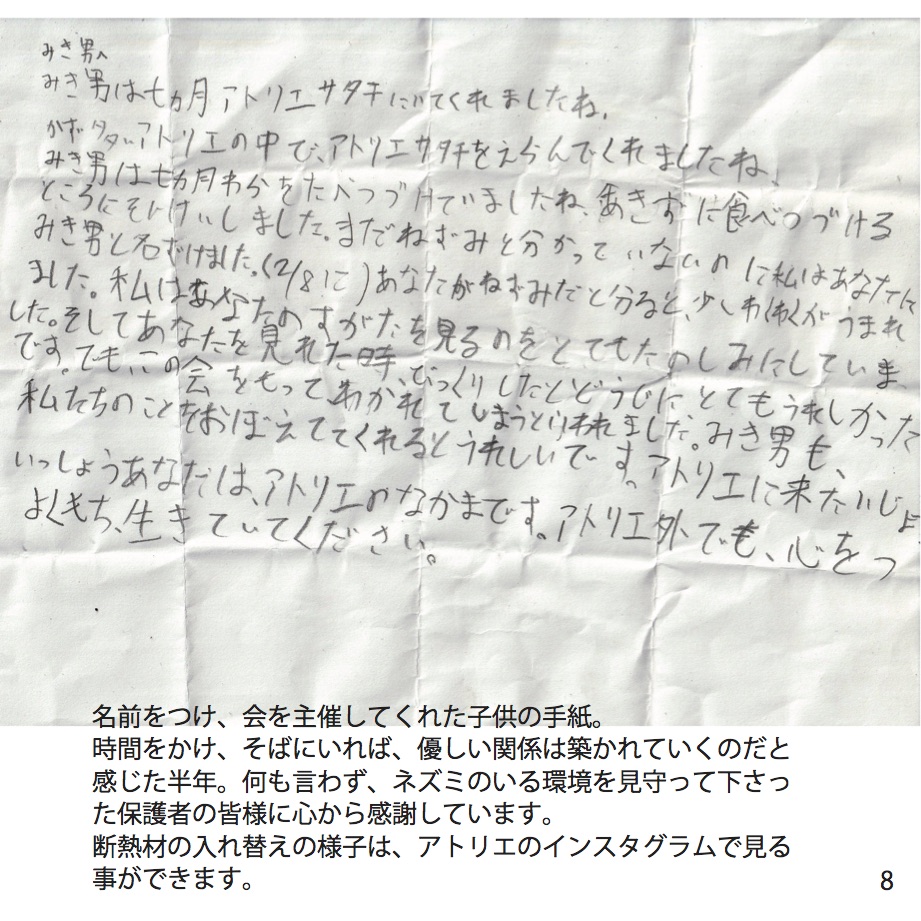 みき男へ
みき男は七カ月アトリエサタチにいてくれましたね。
かずタタいアトリエの中で、アトリエサタチをえらんでくれましたね、
みき男は七カ月わかをたべつづけていましたね、あきずに食べつづける
ところにそんけいしました。まだでねずみと分かっていないのに私はあなたに
みき男と名づけました。(2/8に)あなたがねずみだと分ると、少しわくわくがうまれ
ました。私はあなたのすがたを見るのをとてもたのしみにしていま
した。そしてあなたを見れた時、びっくりしたとどうじにとてもうれしかった
です。でも、この会をもってわかれてしまうといわれました。みき男も、
私たちのことをおぼえててくれるとうれしいです。アトリエに来たいじょう
いっしょうあなたは、アトリエのなかまです。アトリエ外でも、心をつ
よくもち、生きていてください。
名前をつけ、会を主催してくれた子供の手紙。
時間をかけ、そばにいれば、優しい関係は築かれていくのだと
感じた半年。何も言わず、ネズミのいる環境を見守って下さっ
た保護者の皆様に心から感謝しています。
断熱材の入れ替えの様子は、アトリエのインスタグラムで見る
事ができます。
8